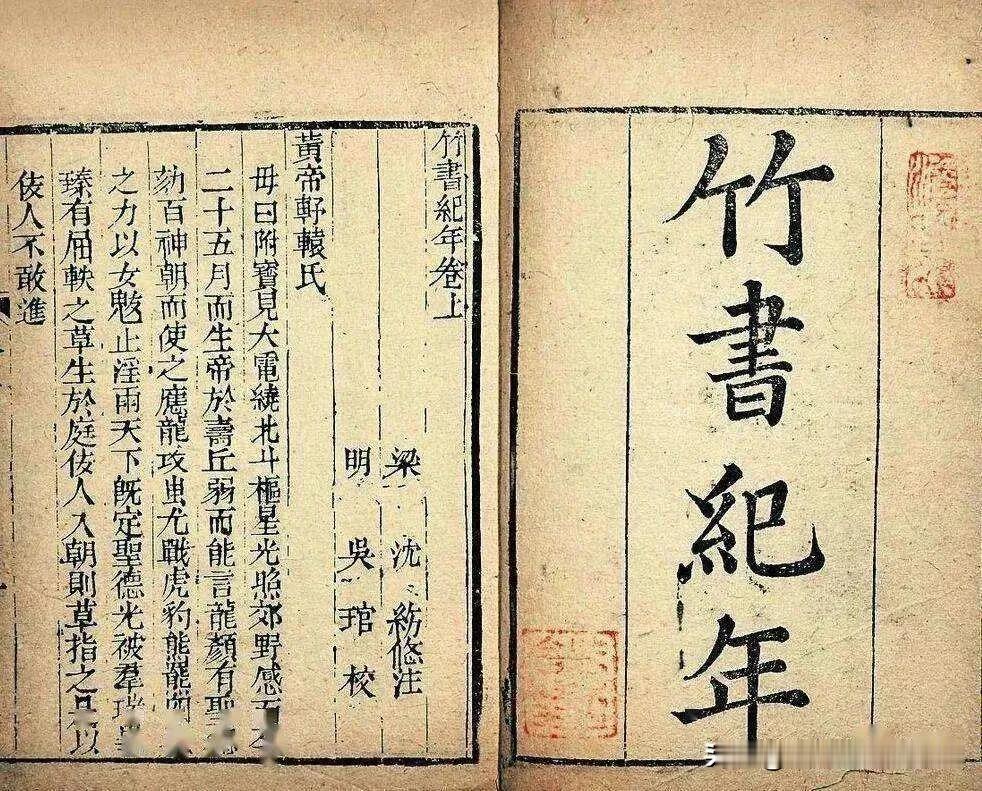 竹書紀年
竹書紀年卷上
梁 沈 注
明 吳 琯 校
黃帝軒轅氏
母曰附寶見大電繞北斗樞星光照郊野感而
二十五月而生帝於壽丘弱而能言龍顏有聖
劾百神朝而使之應龍攻蚩尤戰虎豹熊羆四
之力以女魃止淫雨天下既定聖德光被羣瑞畢
臻有屈軼之草生於庭佞人入朝則草指之是以
佞人不敢進